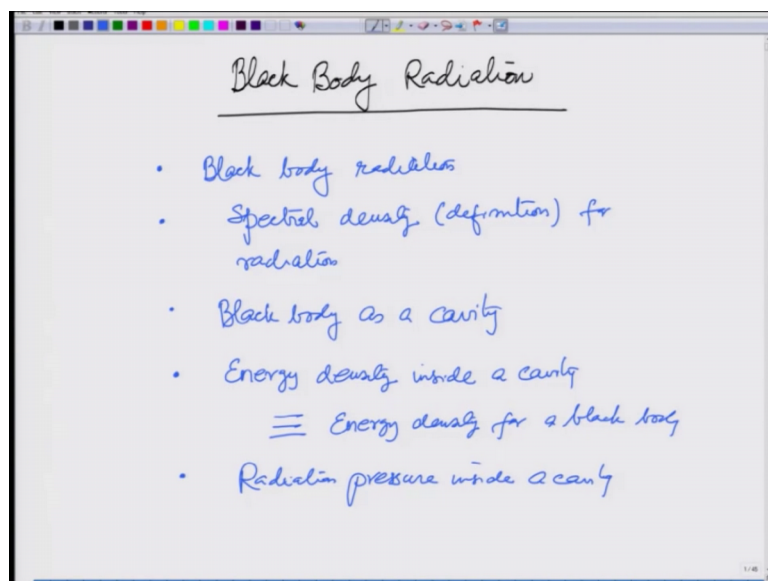 Black Body Radiation
• Black body radiation
• Spectral density (definition) for
radiation
• Black body as a cavity
• Energy density inside a cavity
≡ Energy density for a black body
• Radiation pressure inside a cavity
1 / 45